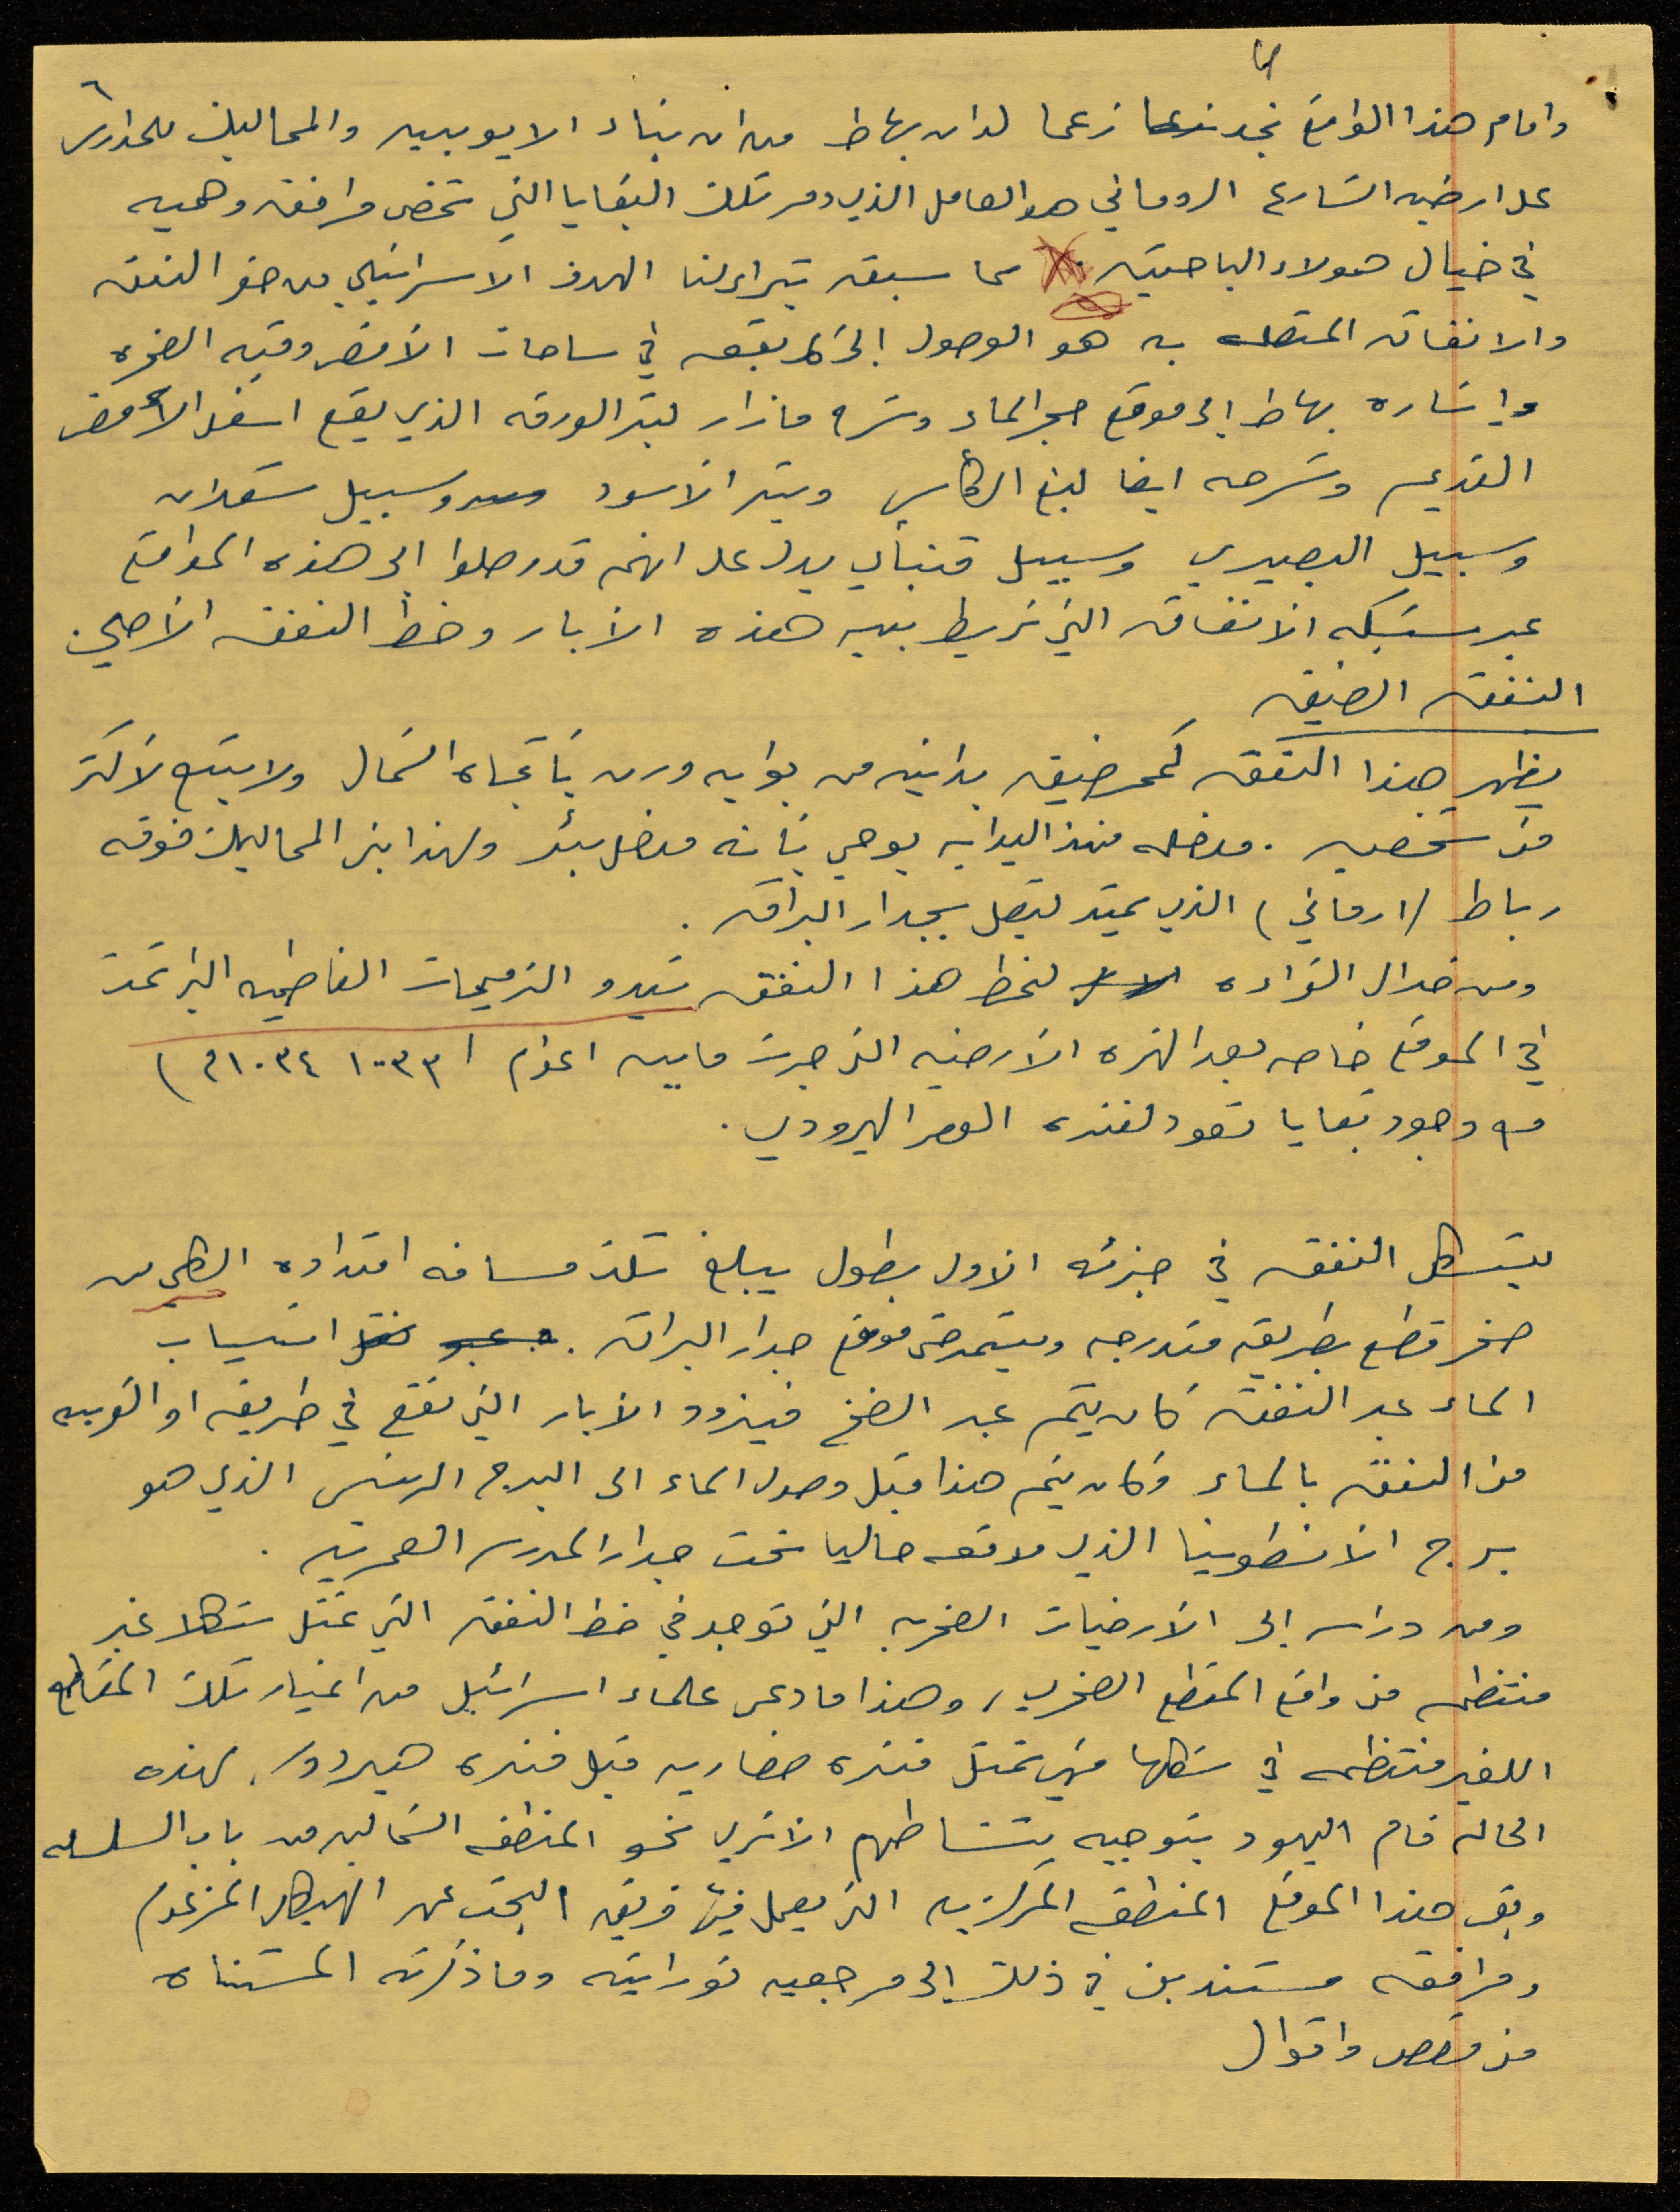 ٦
وامام هذا الواقع نجد زعما لدان بهاط من ان بناء الايوبيين والمماليك للمدارس
على ارضيه الشارع الروماني هو العامل الذي دمر تلك البقايا التي تخص مرافق وهميه
في خيال هولاء الباحثين. مما سبق يتراءى لنا الهدف الاسرائيلي من حفر النفق
والانفاق المتصله به هو الوصول الى كل بقعه في ساحات الأقصى وقبه الصخره
واشاره بهاط الى موقع حجر الماء وشرح مازار لبئر الورقه الذي يقع اسفل الاقصى
القديم وشرحه ايضا لبئر الكأس وبئر الأسود وسبيل شعلان
وسبيل البصيري وسبيل قتباي يدل على انهم قد وصلوا الى هذه المواقع
عبر شبكه الانفاق التي تربط بين هذه الأبار وخط النفق الأصلي.
النفق الضيق
يظهر هذا النفق كممر ضيق بدائيه من بوابه ورن بأتجاه الشمال ولا يتسع لأكثر
من شخصين. مدخله منذ البدايه يوحي بأنه مدخل بئر ولهذا بنى المماليك فوقه
رباط (ارماني) الذي يمتد ليتصل بجدار البراق.
ومن خلال القراءه لخط هذا النفق تبدو الترميمات الفاطميه التي تمت
في الموقع خاصه بعد الهزه الأرضيه التي جرت مابين اعوام (١٠٣٣ ١٠٣٤م)
مع وجود بقايا تعود لفتره العصر الهيرودي.
يتشكل النفق في جزئه الاول بطول يبلغ ثلث مسافه امتداده الكلي من
صخر قطع بطريقه متدرجه ويستمر حتى موقع جدار البراق. انسياب
الماء عبر النفق كان يتم عبر الضخ فيزود الأبار التي تقع في طريقه او القريبه
من النفق بالماء وكان يتم هذا قبل وصول الماء الى البرج الرئيس الذي هو
برج الأنطونيا الذي موقعه حاليا تحت جدار المدرسه العمريه.
ومن دراسه الى الأرضيات الصخريه التي توجد في خط النفق التي تمثل شكلا غير
منتظم من واقع المقطع الصخري، وهذا مادعى علماء اسرائيل من اعتبار تلك المقاطع
اللغير منتظمه في شكلها فهي تمثل فتره حضاريه قبل فتره هيرودوس. لهذه
الحاله قام اليهود بتوجيه نشاطهم الأثري نحو المنطقه الشماليه من باب السلسله
وبقى هذا الموقع المنطقه المركزيه التي يعمل فيها فريق البحث عن الهيكل المزعوم
ومرافقه مستندين في ذلك الى مرجعيه توراتيه وما ذكرته المشناه
من قصص واقوال